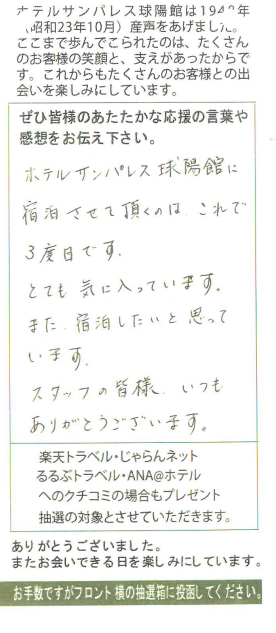 ホテルサンパレス球陽館は1948年
（昭和23年10月）産声をあげました。
ここまで歩んでこられたのは、たくさん
のお客様の笑顔と、支えがあったからで
す。これからもたくさんのお客様との出
会いを楽しみにしています。
ぜひ皆様のあたたかな応援の言葉や
感想をお伝え下さい。
ホテルサンパレス球陽館に
宿泊させて頂くのは、これで
3度目です。
とても気に入っています。
また、宿泊したいと思って
います。
スタッフの皆様、いつも
ありがとうございます。
楽天トラベル・じゃらんネット
るるぶトラベル・ANA@ホテル
へのクチコミの場合もプレゼント
抽選の対象とさせていただきます。
ありがとうございました。
またお会いできる日を楽しみにしています。
お手数ですがフロント横の抽選箱に投函してください。